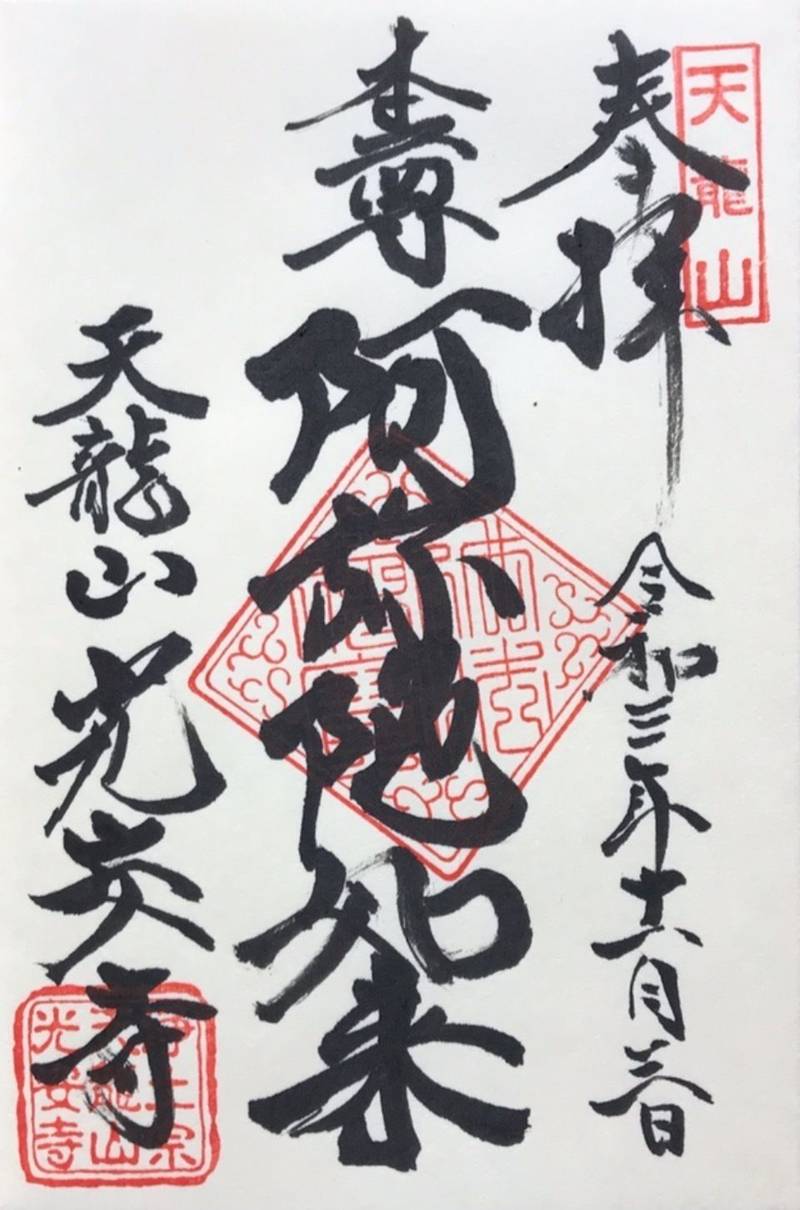 天龍山
奉拝
令和三年
月
日
本尊 阿弥陀如来
佛法僧寶
天龍山 光安寺
浄土宗
天龍山
光安寺